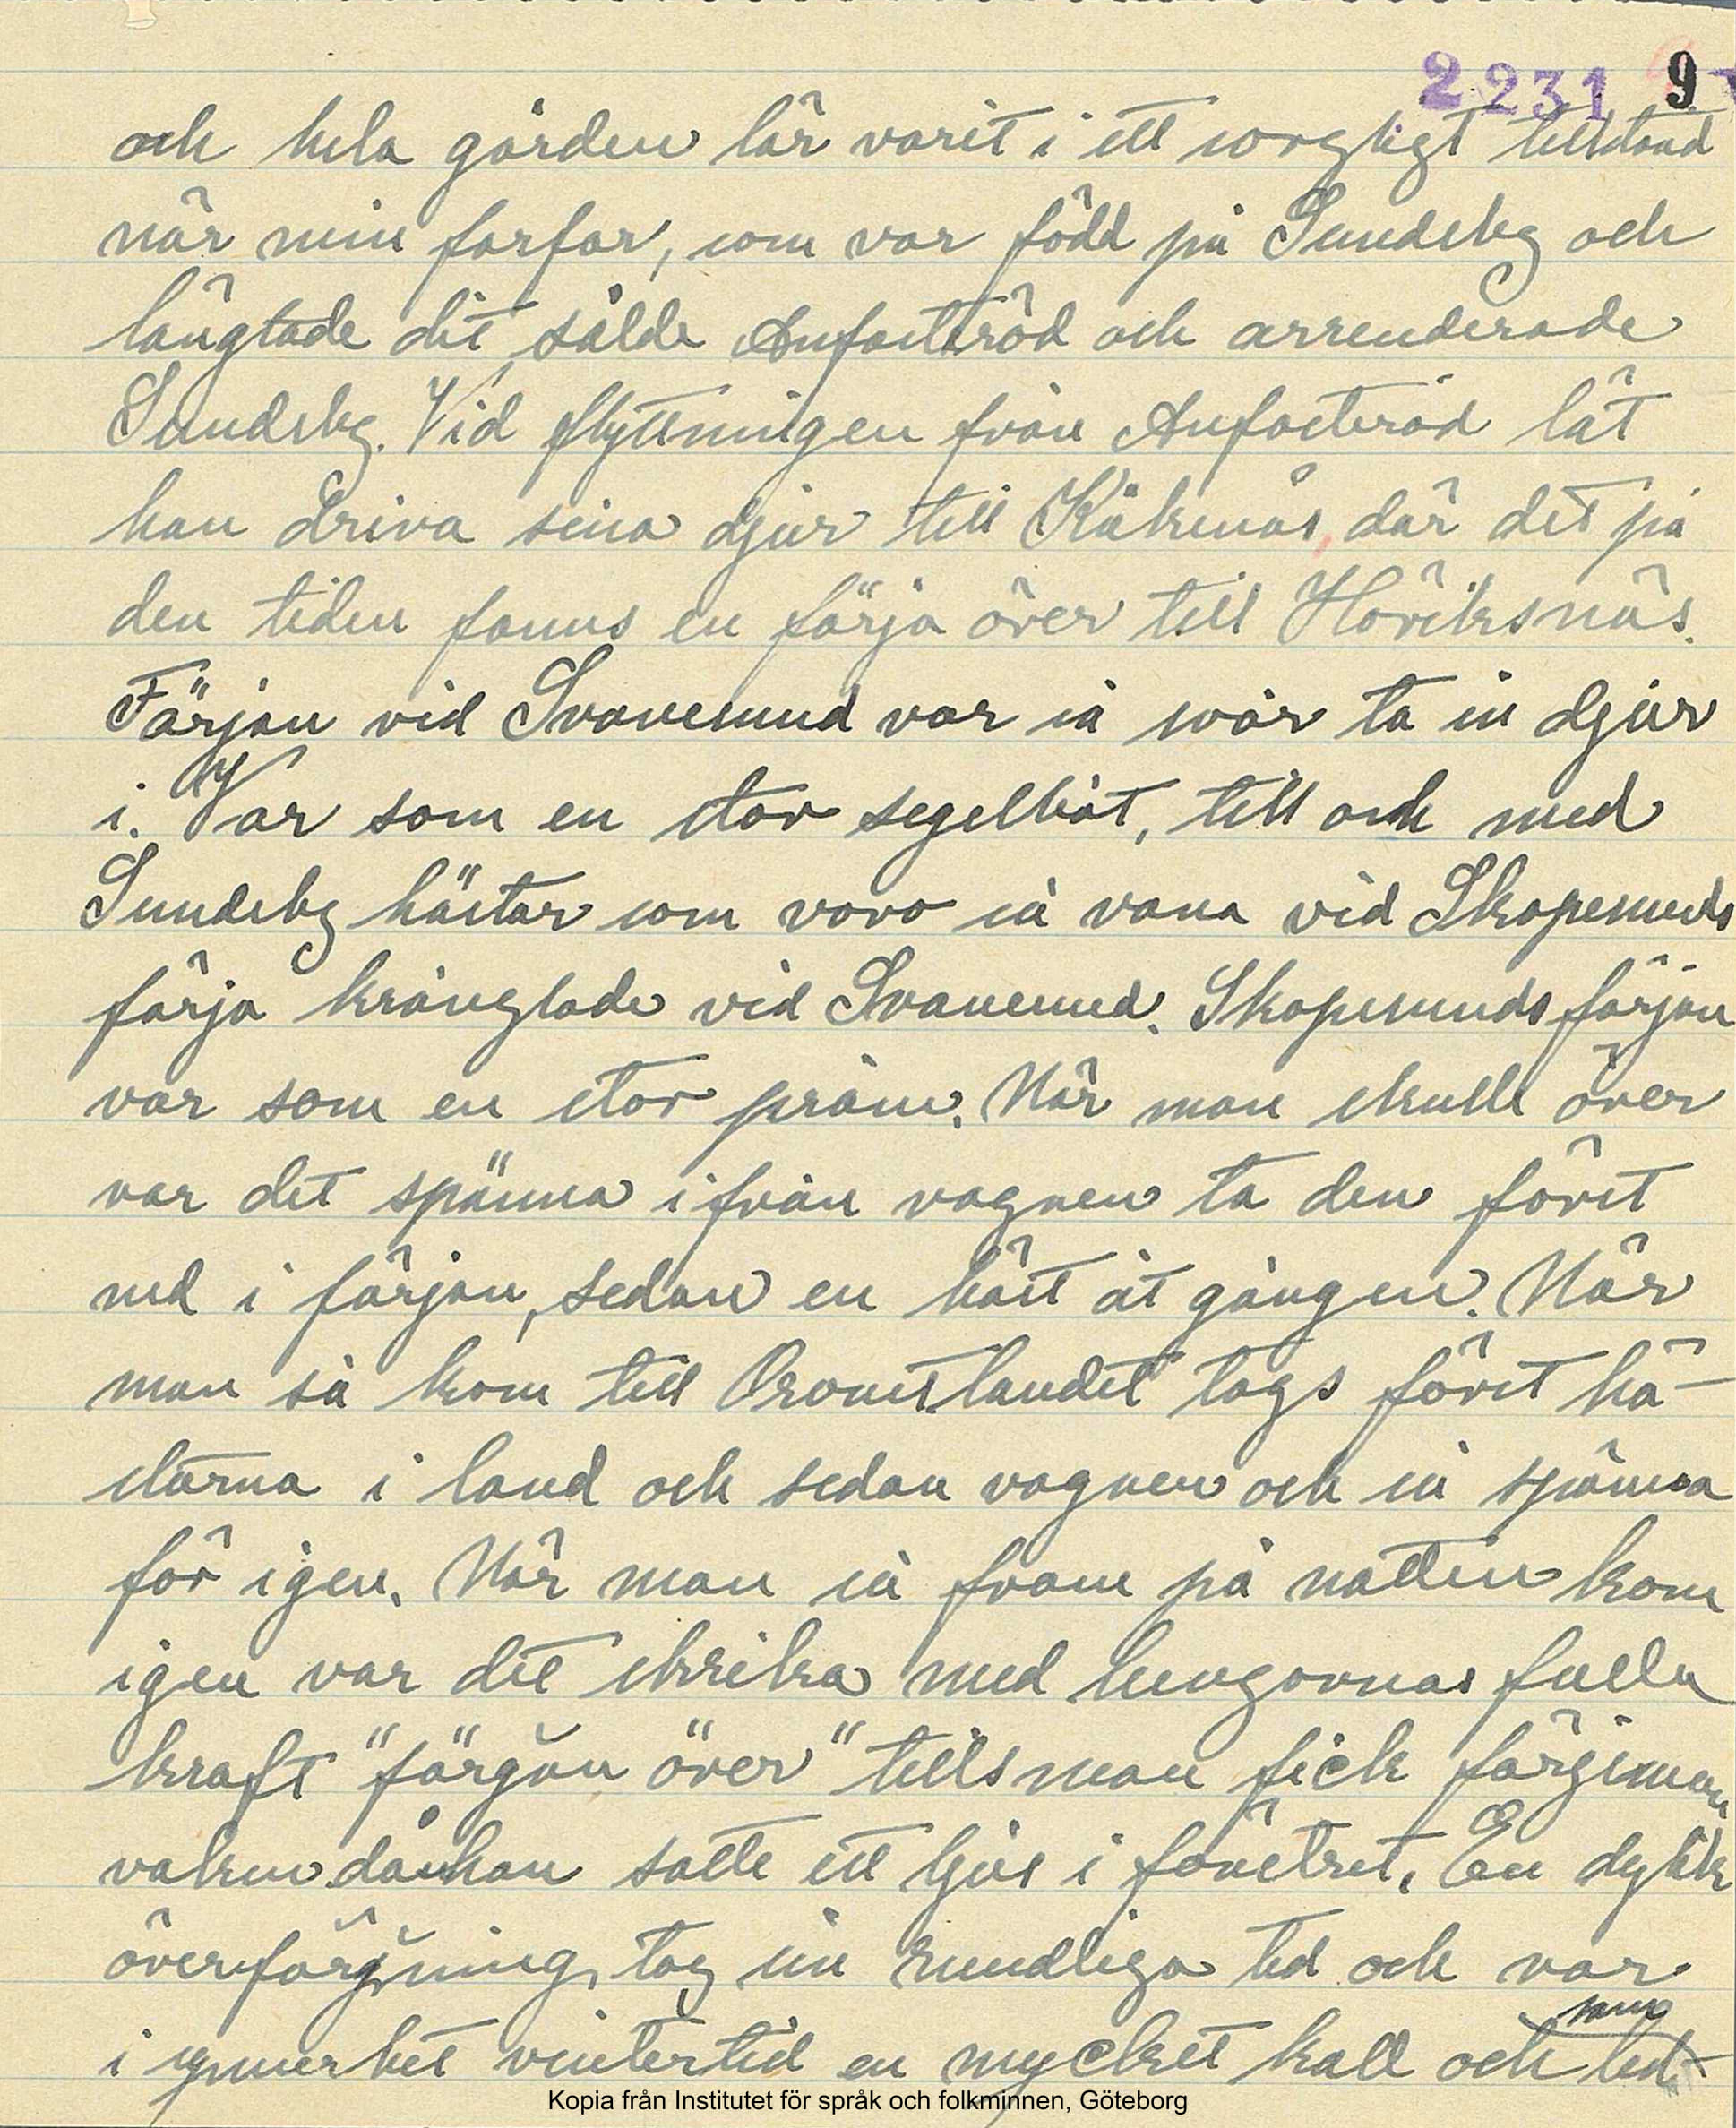 2231 9
och hela gården lär varit i ett sorgligt tillstånd
när min farfar, som var född på Sundsby och
längtade dit, sålde Anfasteröd och arrenderade
Sundsby. Vid flyttningen från Anfasteröd lät
han driva sina djur till Kåkenäs, där det på
den tiden fanns en färja över till Höviksnäs.
Färjan vid Svanesund var så svår ta in djur
i. Var som en stor segelbåt, till och med
Sundsby hästar som voro så vana vid Skåpesunds
färja krånglade vid Svanesund. Skåpesundsfärjan
var som en stor pråm. När man skulle över
var det spänna ifrån vagnen ta den först
ned i färjan, sedan en häst åt gången. När
man så kom till Oroustlandet togs först hä-
starna i land och sedan vagnen och så spänna
för igen. När man så fram på natten kom
igen var det skrika med lungornas fulla
kraft "färgan över" tills man fick färjeman
vaken då han satte ett ljus i fönstret. En dylik
överfärjning, tog sin rundliga tid och var
i synnerhet vintertid en mycket kall och
Kopia från Institutet för språk och folkminnen, Göteborg